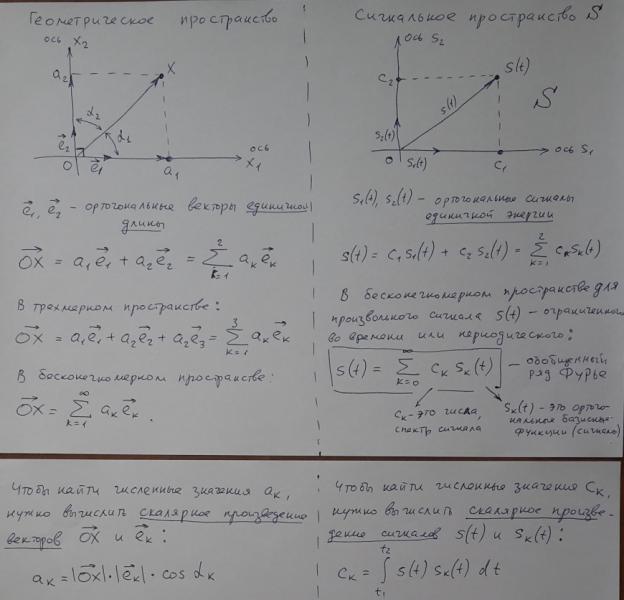 Геометрическое пространство
ось X₂
a₂
X
α₂
α₁
e⃗₂
O
e⃗₁
a₁
ось X₁
e⃗₁, e⃗₂ – ортогональные векторы единичной
длины
OX⃗ = a₁e⃗₁ + a₂e⃗₂ = ∑ₖ₌₁² aₖe⃗ₖ
В трехмерном пространстве:
OX⃗ = a₁e⃗₁ + a₂e⃗₂ + a₂e⃗₃ = ∑ₖ₌₁³ aₖe⃗ₖ
В бесконечномерном пространстве:
OX⃗ = ∑ₖ₌₁^∞ aₖe⃗ₖ.
Сигнальное пространство S
ось S₂
C₂
S(t)
s(t)
S
S₂(t)
O
S₁(t)
C₁
ось S₁
S₁(t), S₂(t) – ортогональные сигналы
единичной энергии
S(t) = C₁S₁(t) + C₂S₂(t) = ∑ₖ₌₁² CₖSₖ(t)
В бесконечномерном пространстве для
произвольного сигнала S(t) – ограниченного
во времени или периодического:
S(t) = ∑ₖ₌₀^∞ Cₖ Sₖ(t) – обобщенный
ряд Фурье
Cₖ – это числа,
спектр сигнала
Sₖ(t) – это ортого-
нальные базисные
функции (сигналы)
Чтобы найти численные значения aₖ,
нужно вычислить скалярное произведение
векторов OX⃗ и e⃗ₖ:
aₖ = |OX⃗|·|e⃗ₖ|·cos αₖ
Чтобы найти численные значения Cₖ,
нужно вычислить скалярное произве-
дение сигналов s(t) и Sₖ(t):
Cₖ = ∫ₜ₁ᵗ² S(t) Sₖ(t) dt